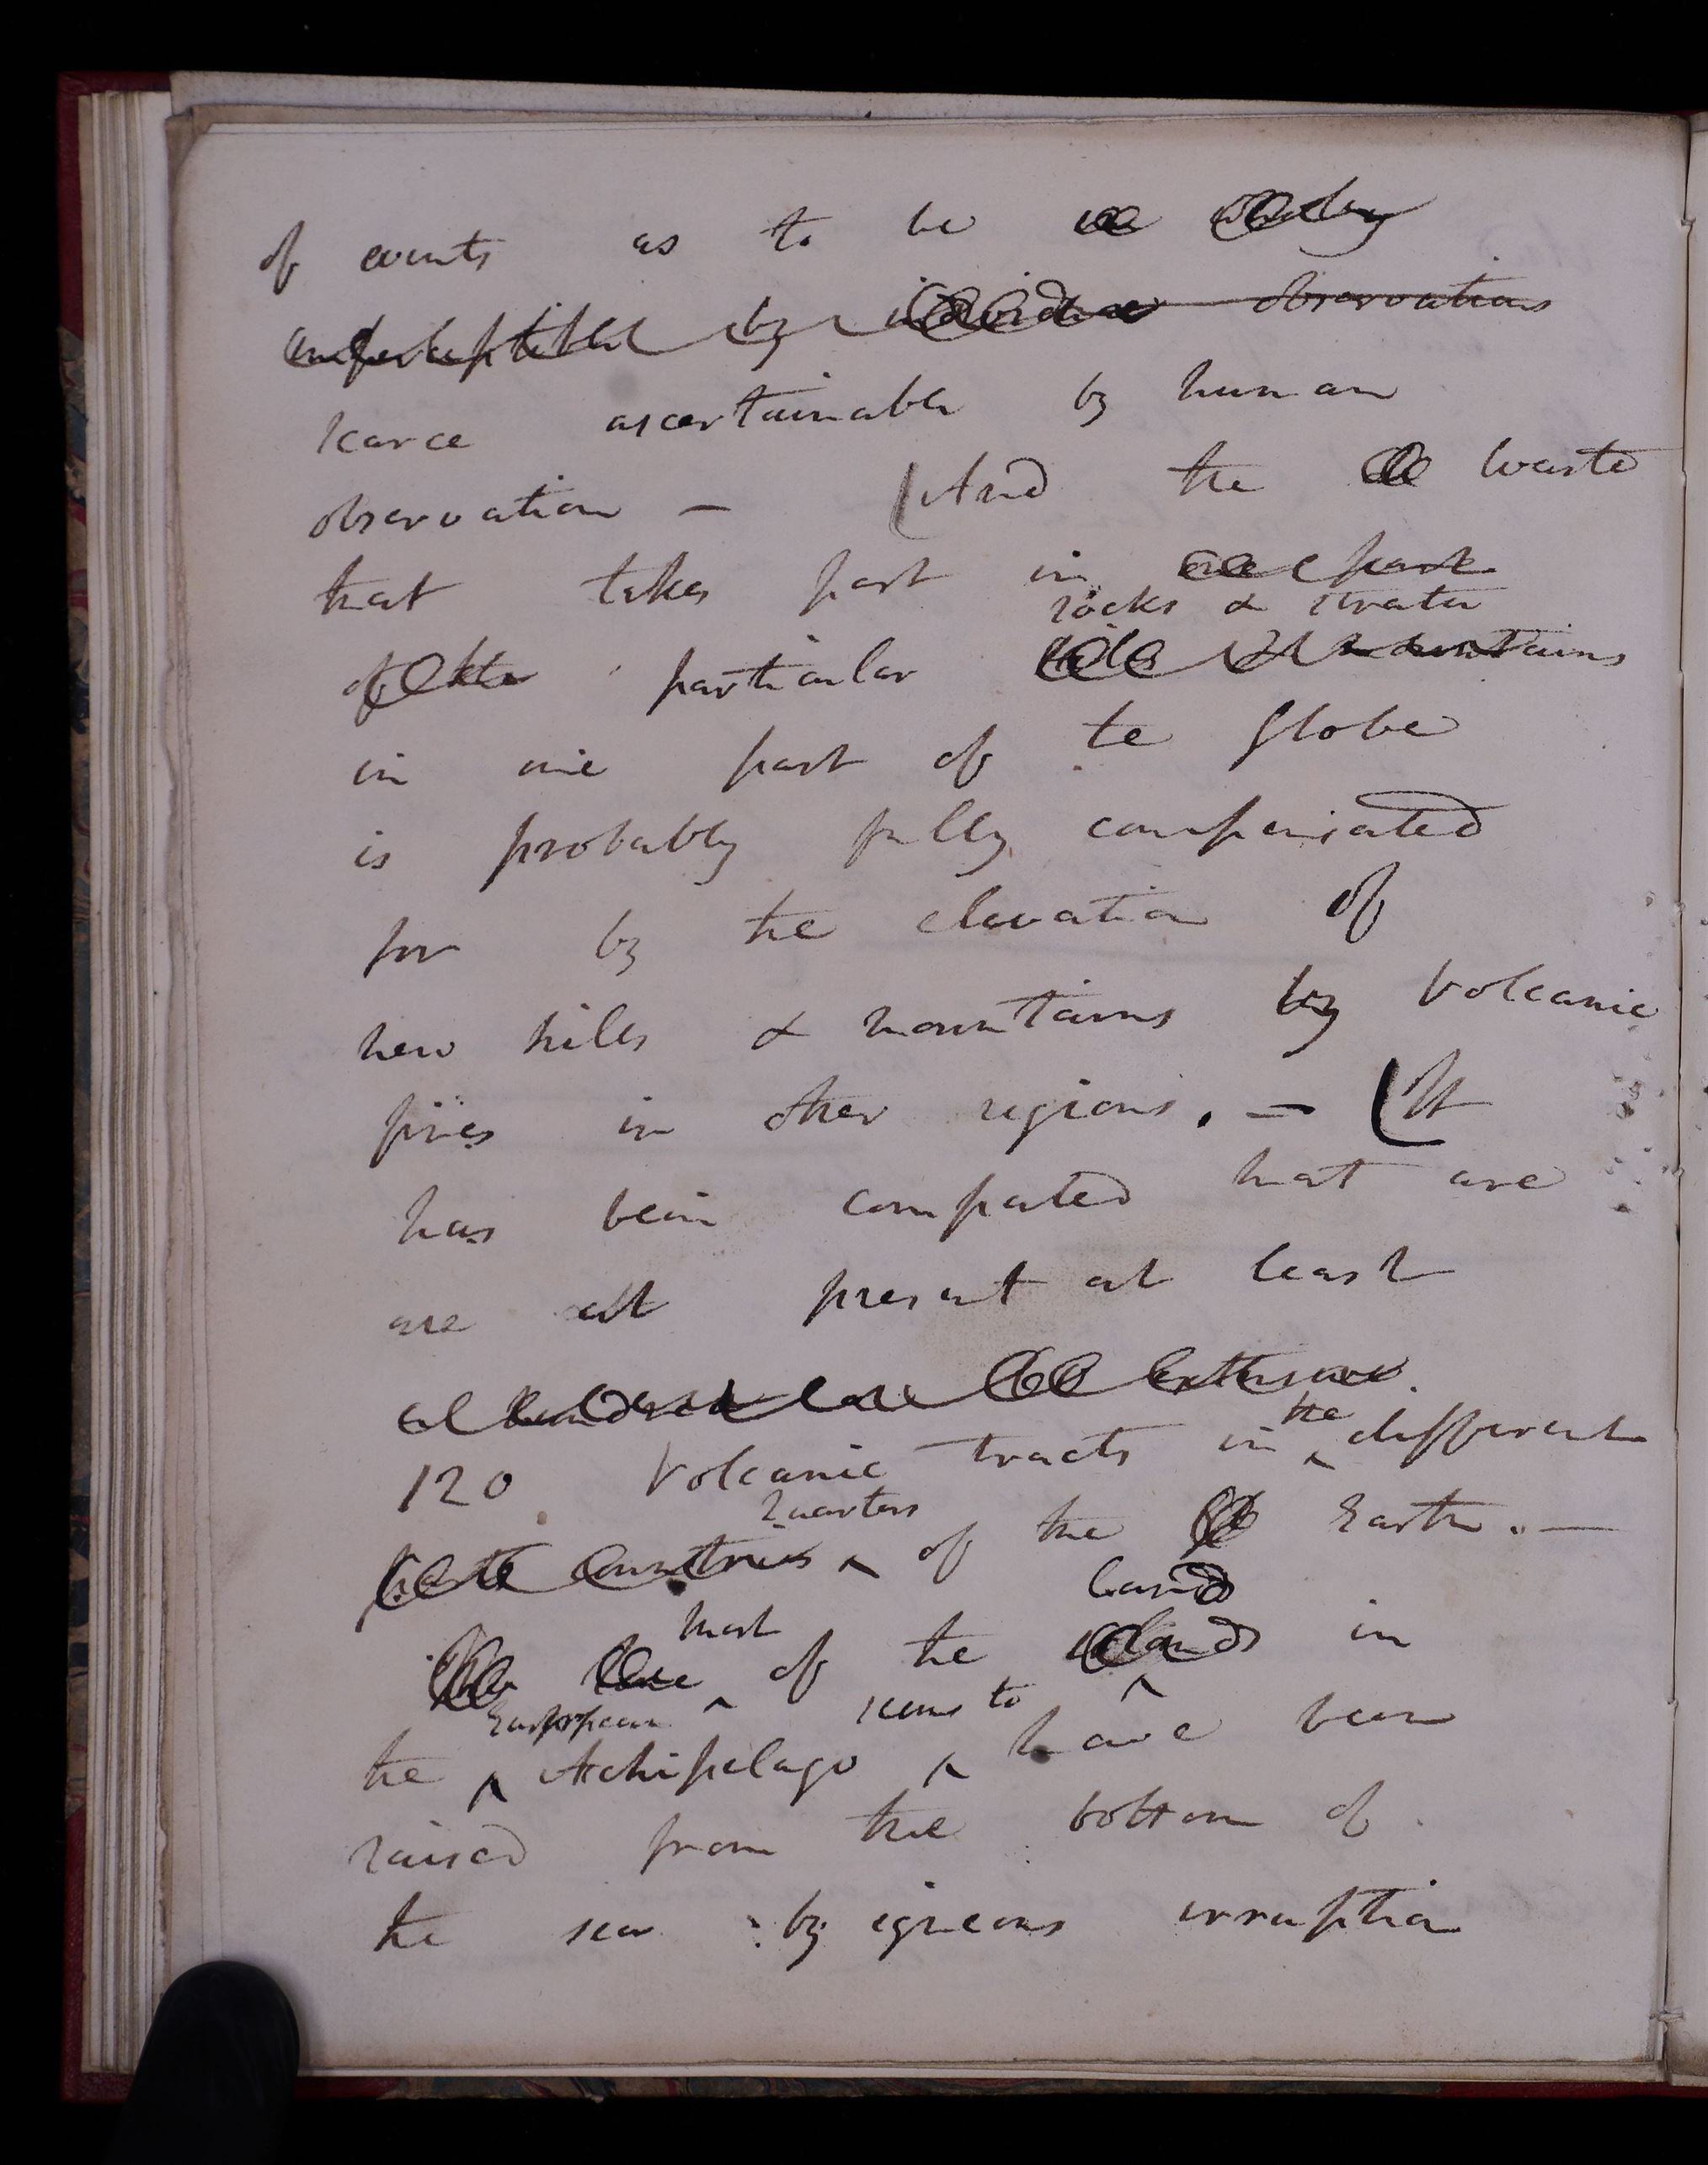 of events as to be
imperceptible by individual observations
scarce ascertainable by human
observation — And the waste
that takes part in one part
rocks & strata
of the particular hills & mountains
in one part of te globe
is probably fully compensated
for by the elevation of
new hills & mountains by volcanic
fires in other regions. — It
has been computed that are
are at present at least
a hundred extensive
the
120 Volcanic tracts in ^ different
quarters
countries ^ of the Earth. —
Land
most
^ of the islands ^ in
European seems to
the ^ Archipelago ^ have been
raised from the bottom of
the sea by igneous irruption